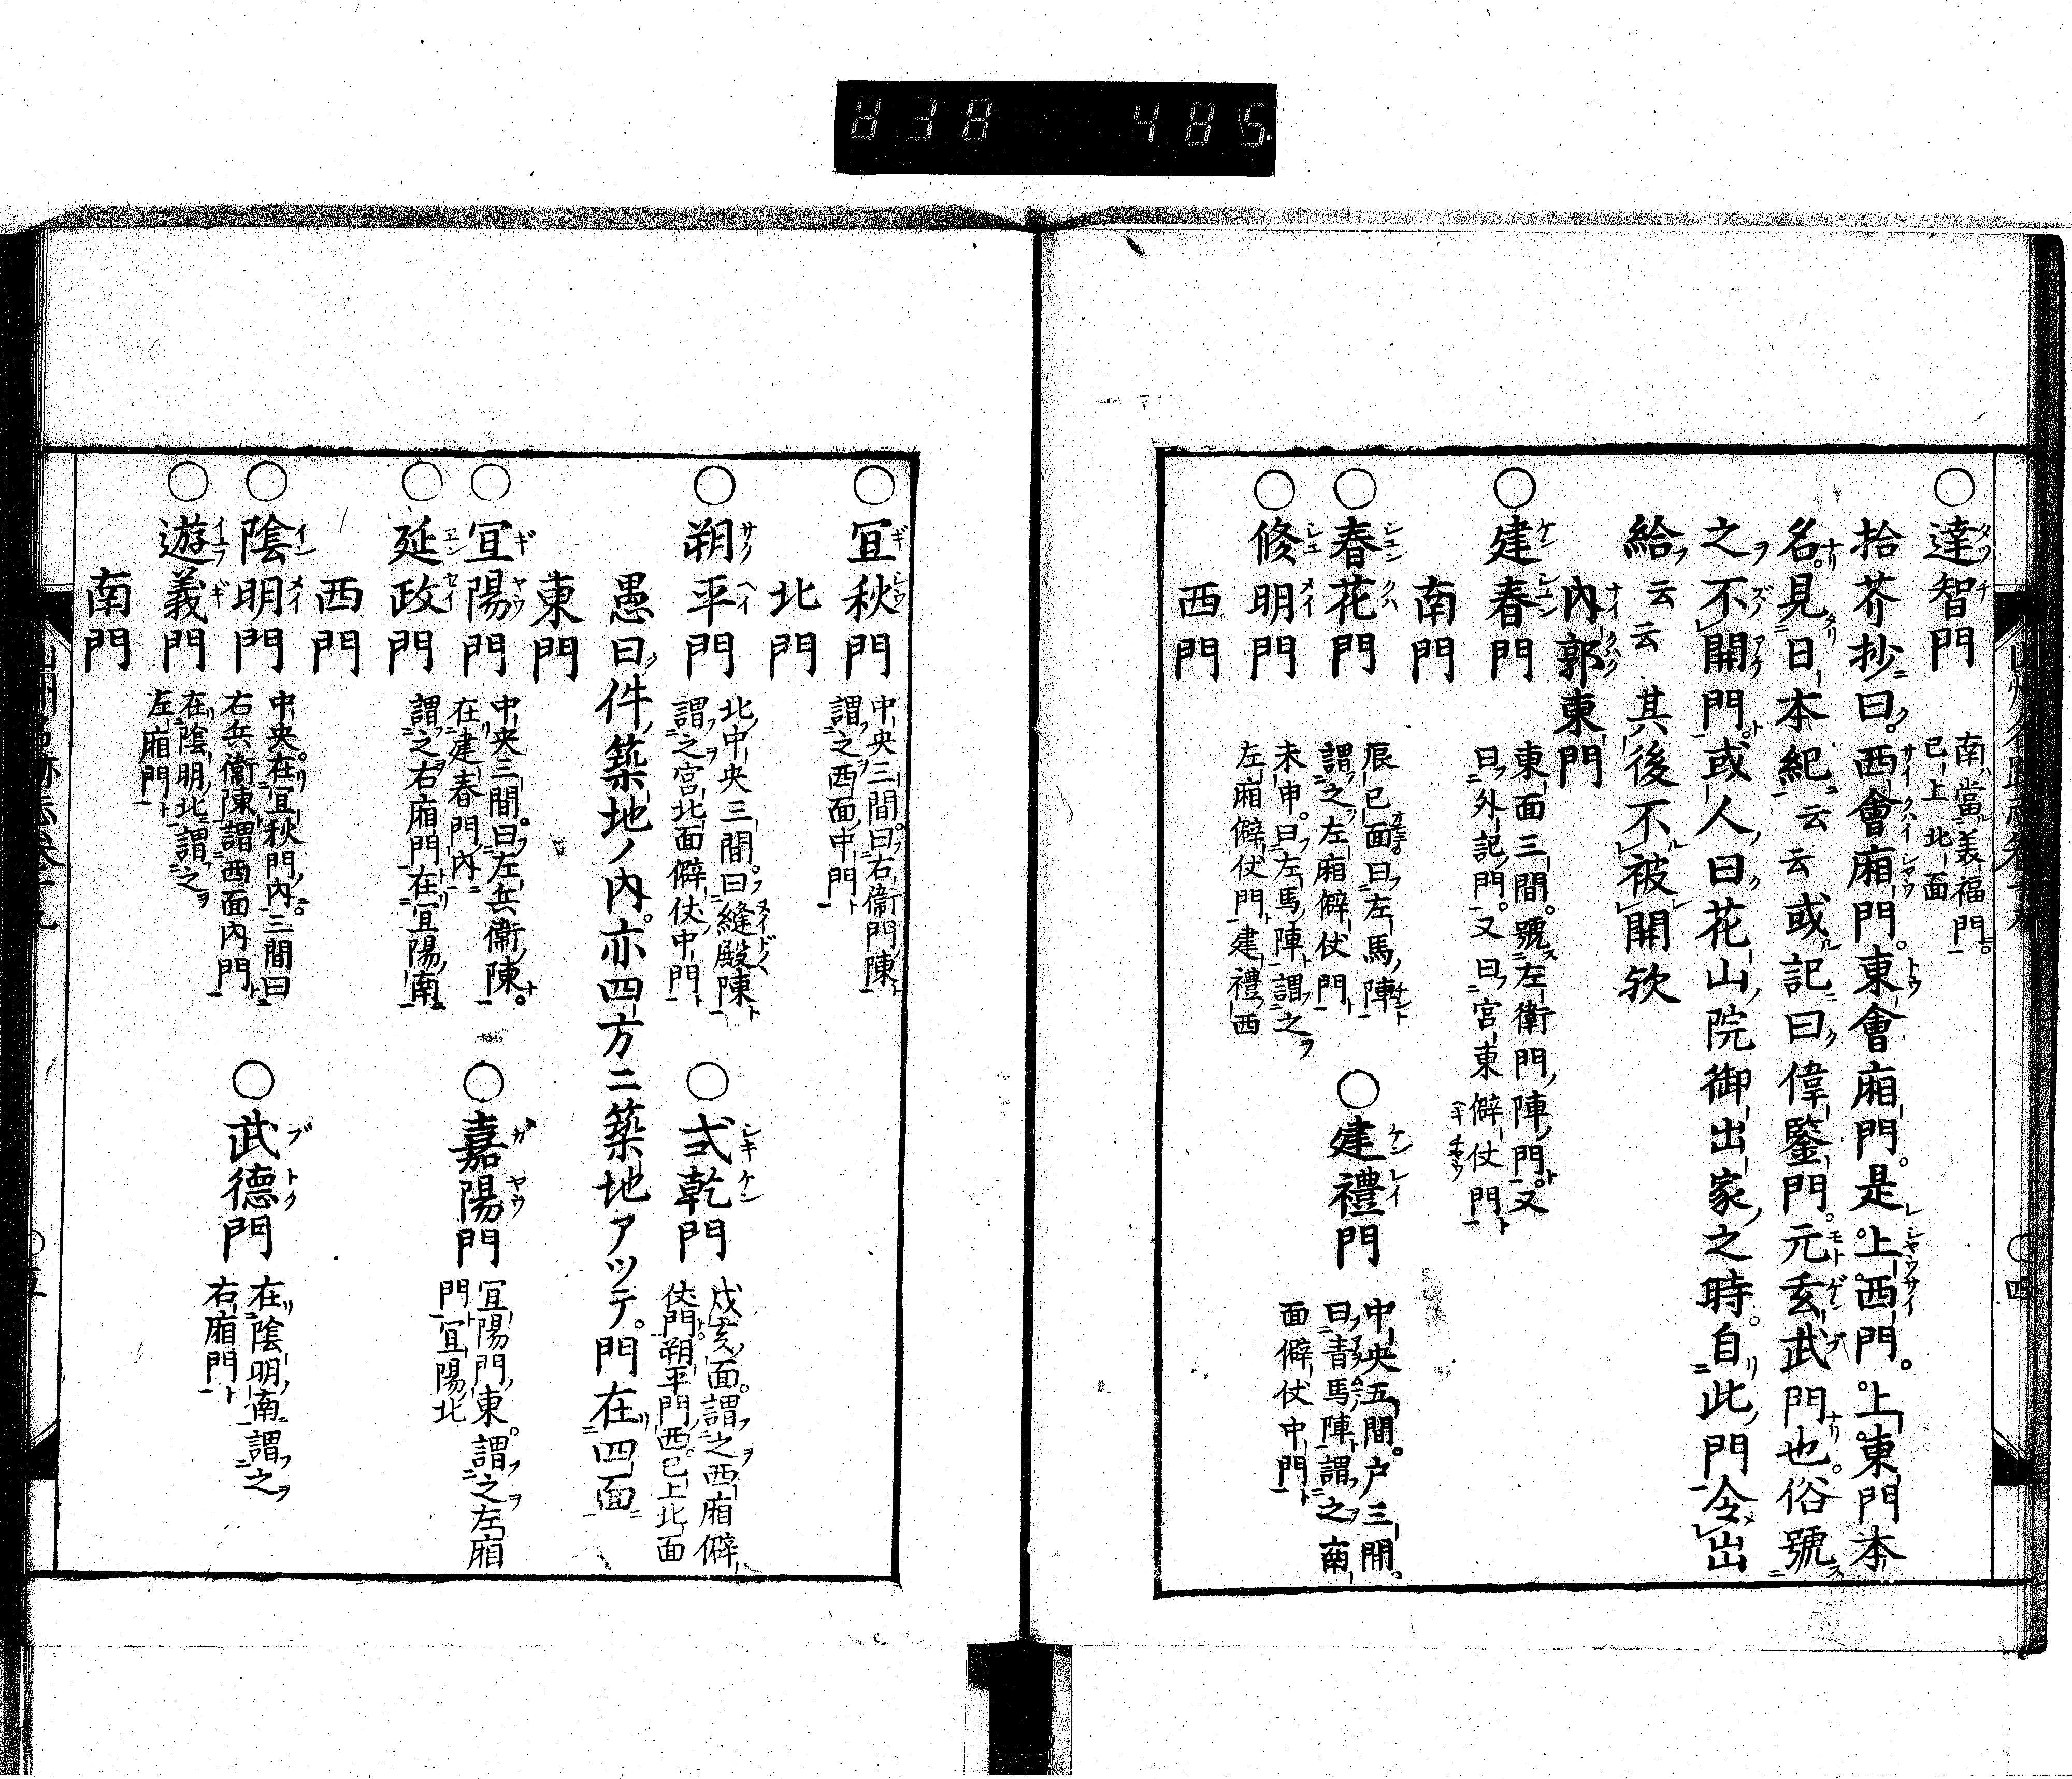 838 485
○達智門 南當美福門
已上北面
拾芥抄曰西會廂門東會廂門是上西門上東門本
名見日本紀云云或記曰偉鑒門元玄武門也俗號
之不開門或人曰花山院御出家之時自此門令出
給云云其後不被開欤
內郭東門
○建春門 東面三間號左衛門陣門又
曰外記門又曰宮東僻仗門
南門
○春花門 辰巳面曰左馬陣
謂之左廂僻仗門
○建禮門 中央五間戸三間
曰青馬陣謂之南
面僻仗中門
○修明門 未申曰左馬陣謂之
左廂僻仗門建禮西
西門
○宜秋門 中央三間曰右衞門陳
謂之西面中門
北門
○朔平門 北中央三間曰縫殿陳
謂之宮北面僻仗中門
○式乾門 戌亥面謂之西廂僻
仗門朔平門西已上北面
愚曰件築地ノ内亦四方ニ築地アッテ門在四面
東門
○宜陽門 中央三間曰左兵衞陳
在建春門內
○嘉陽門 宜陽門東謂之左廂
門宜陽北
○延政門 謂之右廂門在宜陽南
西門
○陰明門 中央在宜秋門內三間曰
右兵衞陳謂西面內門
○武德門 在陰明南謂之
右廂門
○遊義門 在陰明北謂之
左廂門
南門